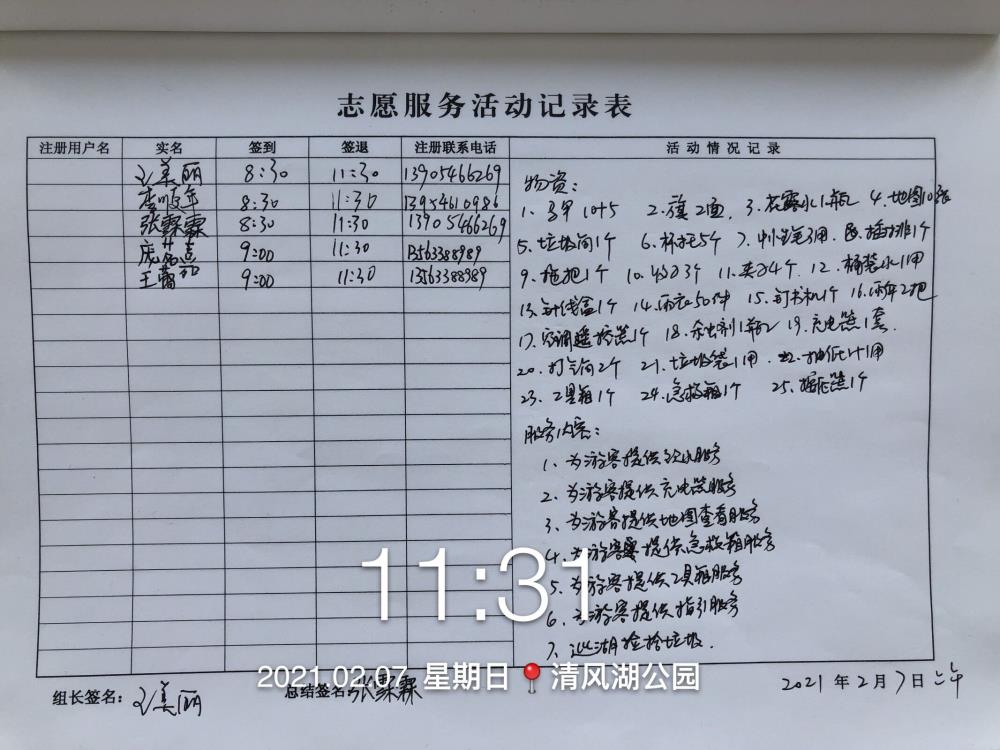 志愿服务活动记录表
注册用户名 实名 签到 签退 注册联系电话 活动情况记录
刘美丽 8:30 11:30 13905466269
李顺年 8:30 11:30 13954610986
张霖霖 8:30 11:30 13905466269
庞茗喜 9:00 11:30 13563388989
王蕾茹 9:00 11:30 13563388989
物资：
1、马甲10件 2、旗2面 3、花露水1瓶 4、地图10张
5、垃圾筒1个 6、杯托5个 7、中性笔3用 8、插排1个
9、拖把1个 10、收纳3个 11、夹子4个 12、桶装水1用
13、针线盒1个 14、雨衣50件 15、订书机1个 16、雨伞2把
17、空调遥控器1个 18、杀虫剂1瓶 19、充电器1套
20、打气筒2个 21、垃圾袋1用 22、抽纸1用
23、工具箱1个 24、急救箱1个 25、
服务内容：
1、为游客提供饮水服务
2、为游客提供充电器服务
3、为游客提供地图查看服务
4、为游客提供急救箱服务
5、为游客提供工具箱服务
6、为游客提供指引服务
7、巡湖捡拾垃圾.
11:31
2021.02.07 星期日 清风湖公园
组长签名：刘美丽 总结签名：张霖霖 2021年2月7日上午